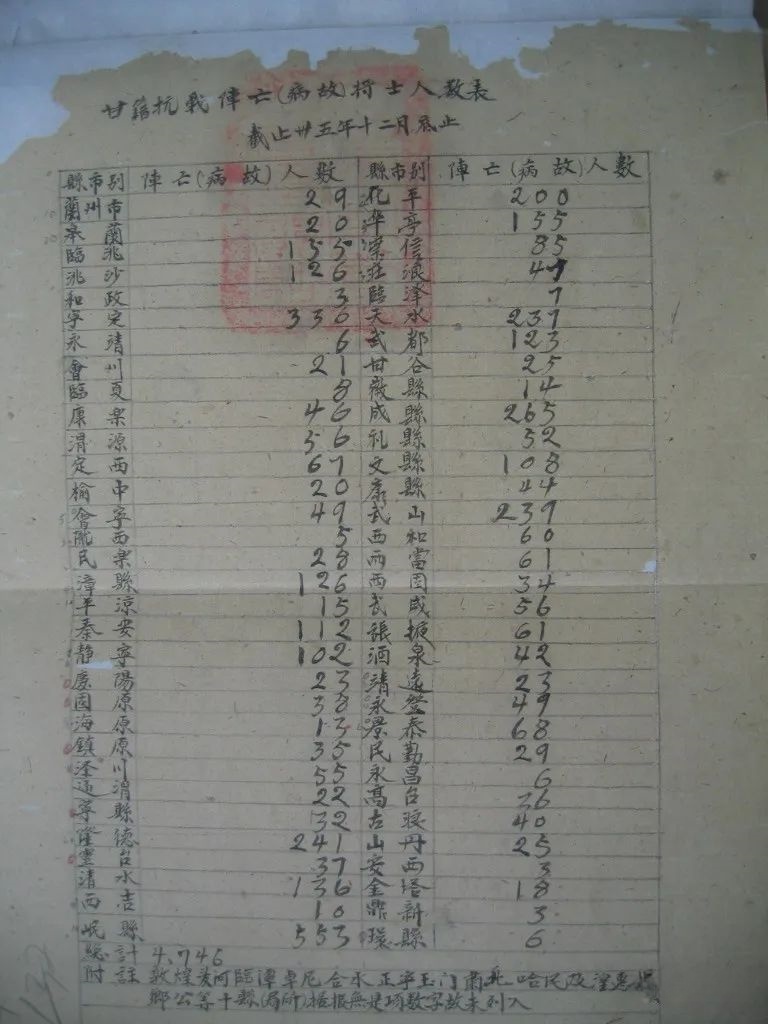 甘籍抗戰陣亡(病故)将士人数表
截止卅五年十二月底止
縣市别 陣亡(病故)人數 縣市别 陣亡(病故)人數
蘭州市 29 化平 200
皋蘭 20 華亭 155
臨洮 155 崇信 85
洮沙 126 莊浪 47
和政 3 臨泽 7
寧定 330 天水 237
永靖 6 武都 123
會川 21 甘谷 25
臨夏 8 徽縣 14
康樂 46 成縣 265
渭源 56 礼縣 52
定西 67 文縣 108
榆中 20 康縣 44
會寧 49 武山 239
隴西 5 西和 60
民樂 28 両當 61
漳縣 126 西固 34
平涼 15 武威 56
秦安 112 張掖 61
靜寧 102 酒泉 42
慶陽 23 靖遠 23
固原 38 永登 49
海原 13 景泰 68
鎮原 35 民勤 29
涇川 55 永昌 6
通渭 22 高台 36
寧縣 32 古浪 40
隆德 241 山丹 25
靈台 37 安西 3
清水 136 金塔 18
西吉 10 鼎新 3
岷縣 553 環縣 6
總計 4,746
附註 敦煌夏河臨潭卓尼合水正寧玉门肅北哈民及湟惠渠
鄉公等十縣(局所)据报無是項数字故未列入